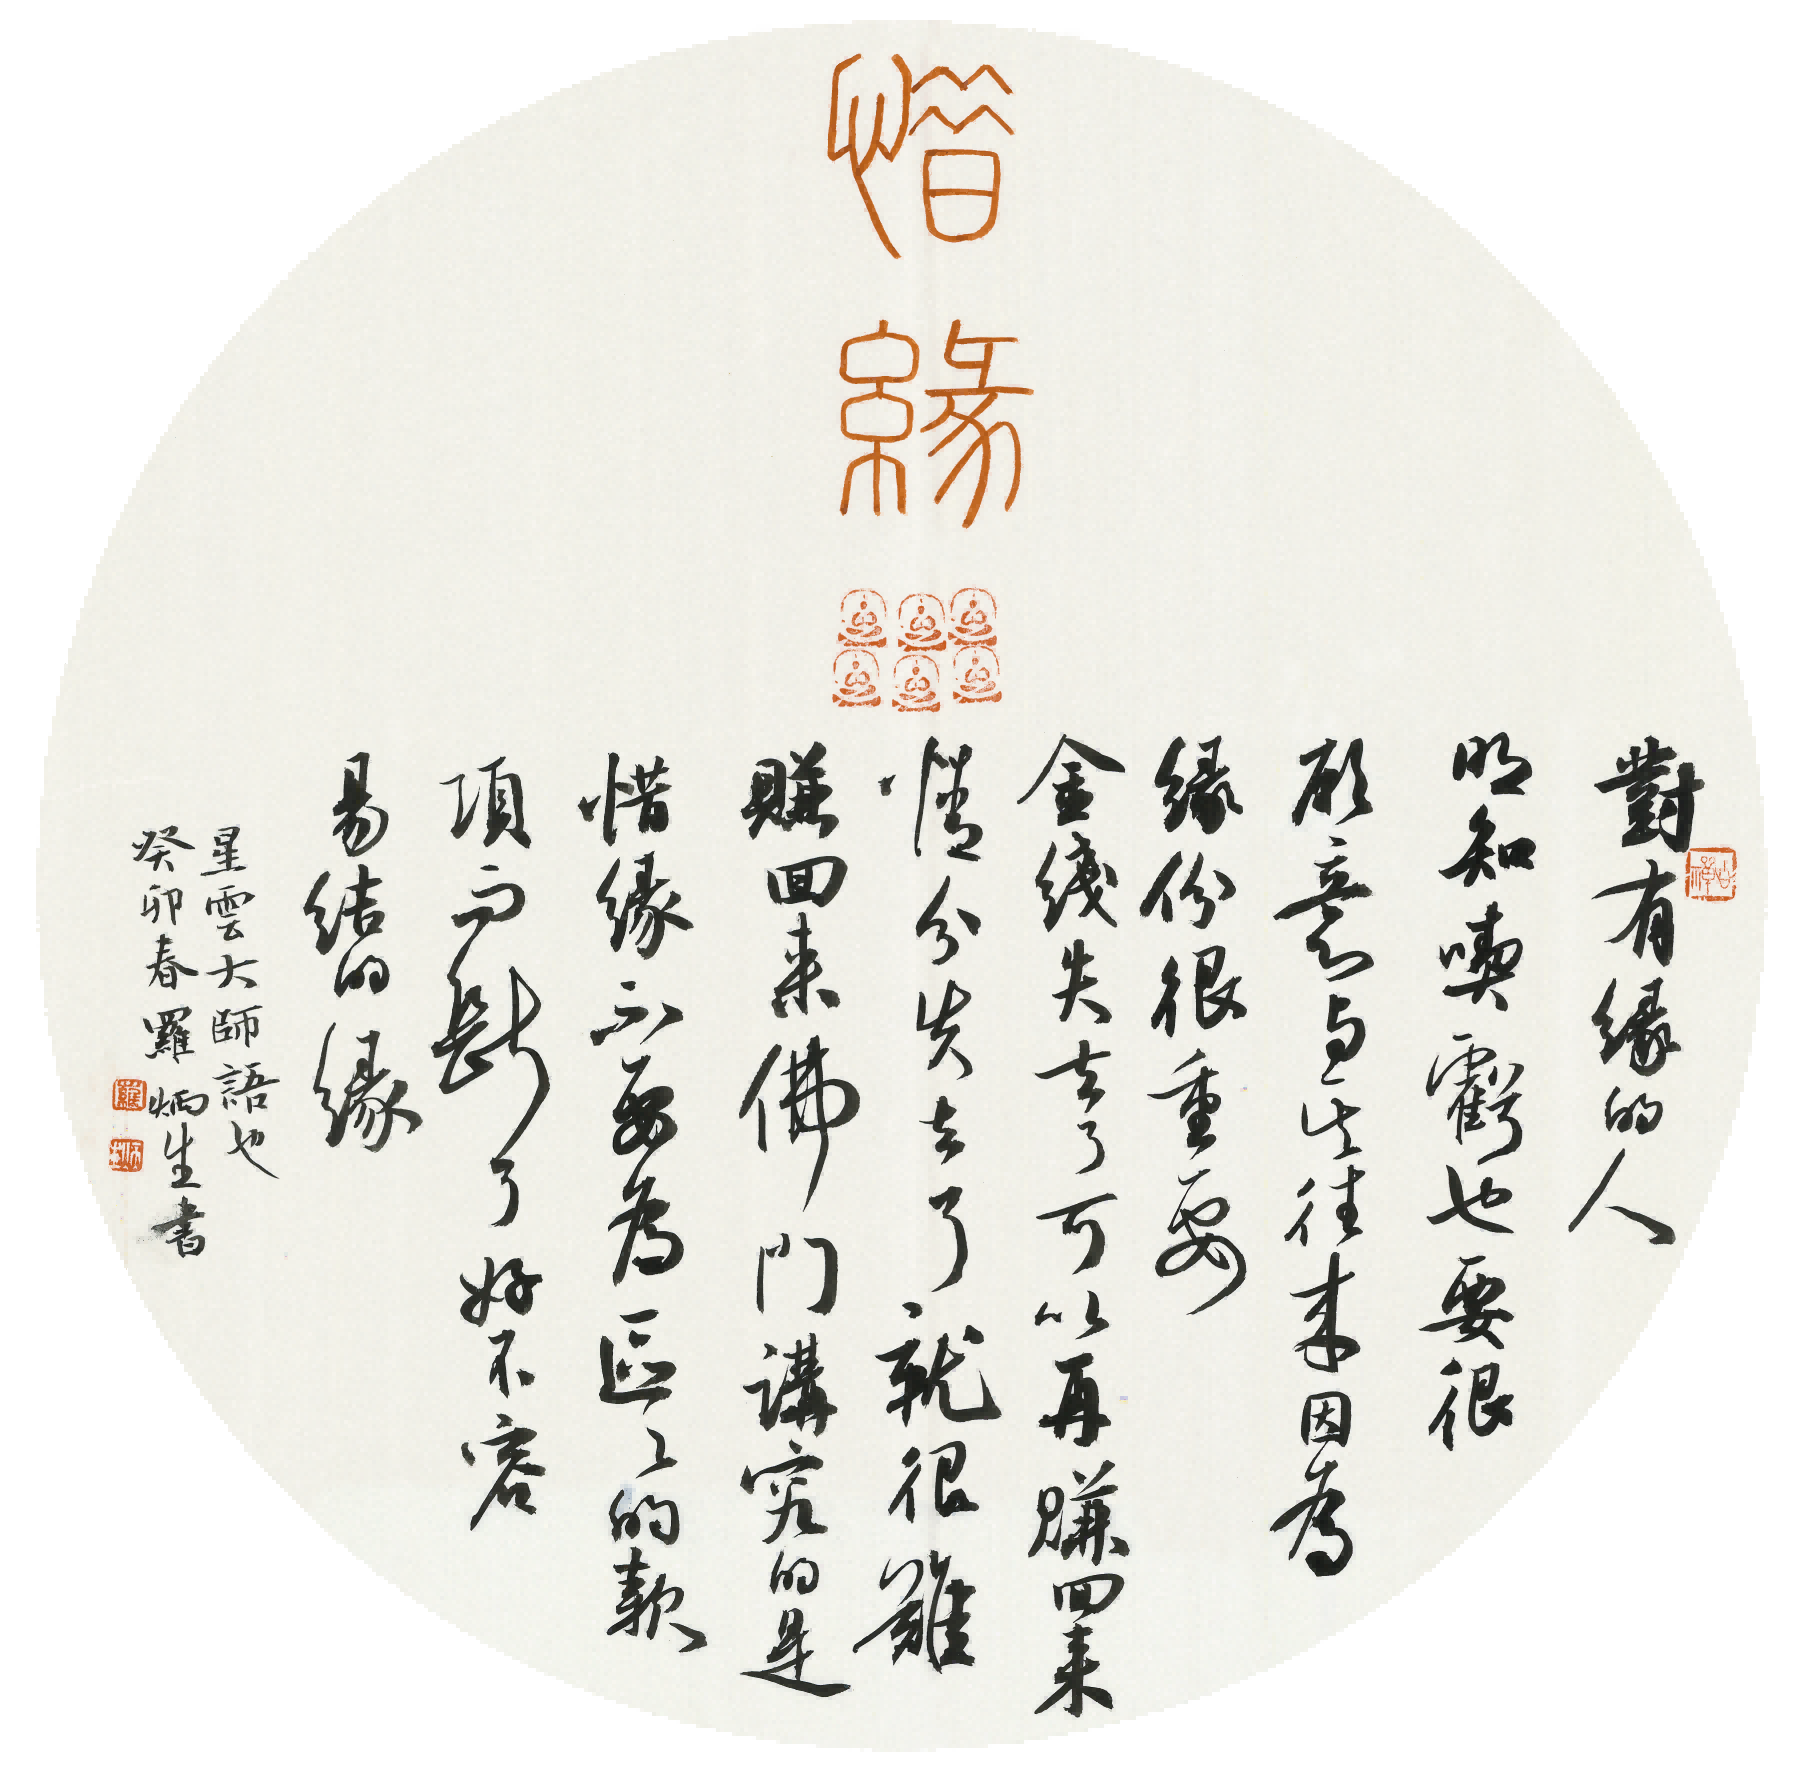 惜緣
對有緣的人
明知喫虧也要很
願意与其往来因為
緣份很重要
金錢失去了可以再賺回来
情分失去了就很難
賺回来佛門講究的是
惜緣不要為區區的款
項而斷了好不容
易結的緣
星雲大師語也
癸卯春羅炳生書
羅